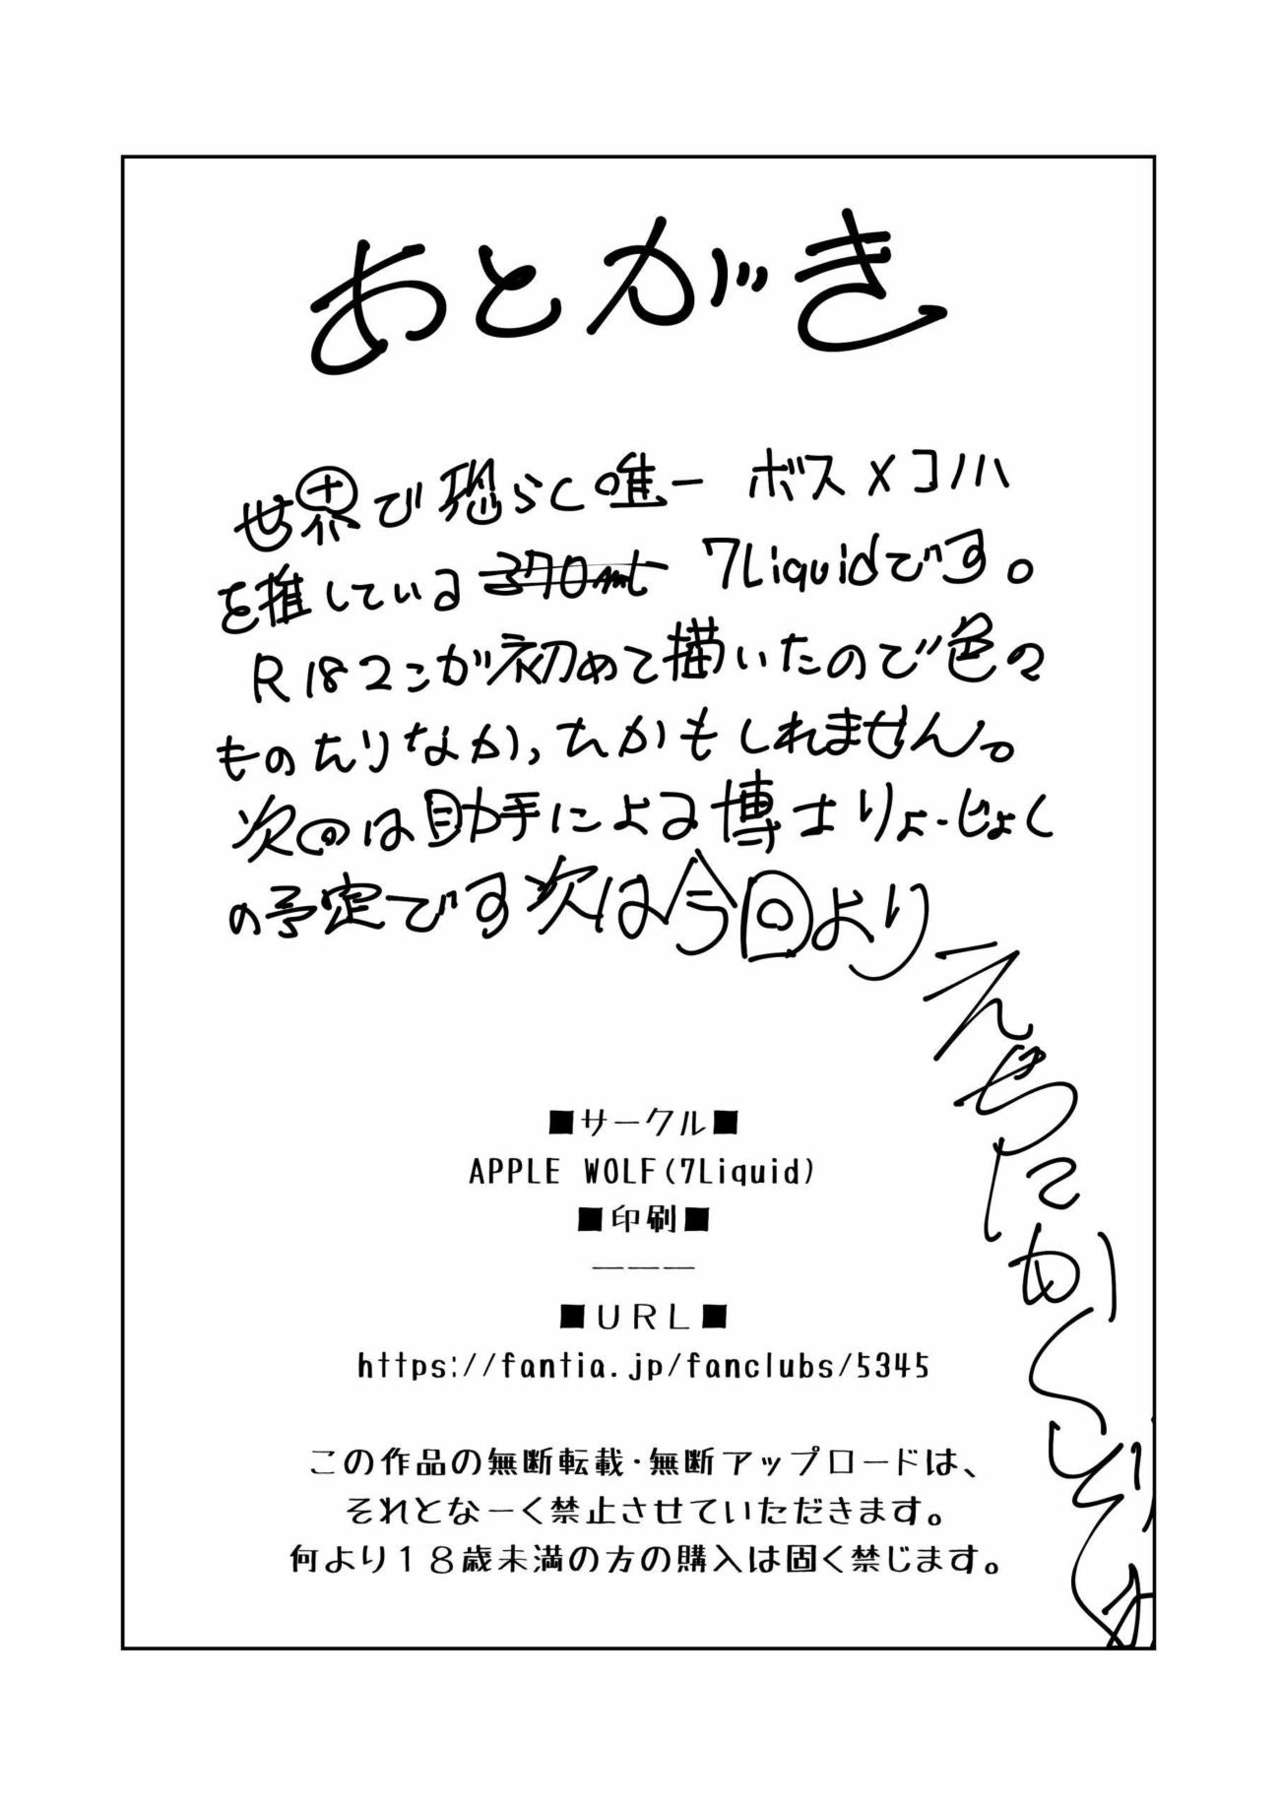 あとがき
世界で恐らく唯一 ボス×コノハ
を推している 370ml 7Liquidです。
R18マンガ初めて描いたので色々
ものたりなかったかもしれません。
次のは助手による博士りょーじょく
の予定です次は今回より
えちちにかく
■サークル■
APPLE WOLF(7Liquid)
■印刷■
———
■URL■
https://fantia.jp/fanclubs/5345
この作品の無断転載・無断アップロードは、
それとなーく禁止させていただきます。
何より18歳未満の方の購入は固く禁じます。